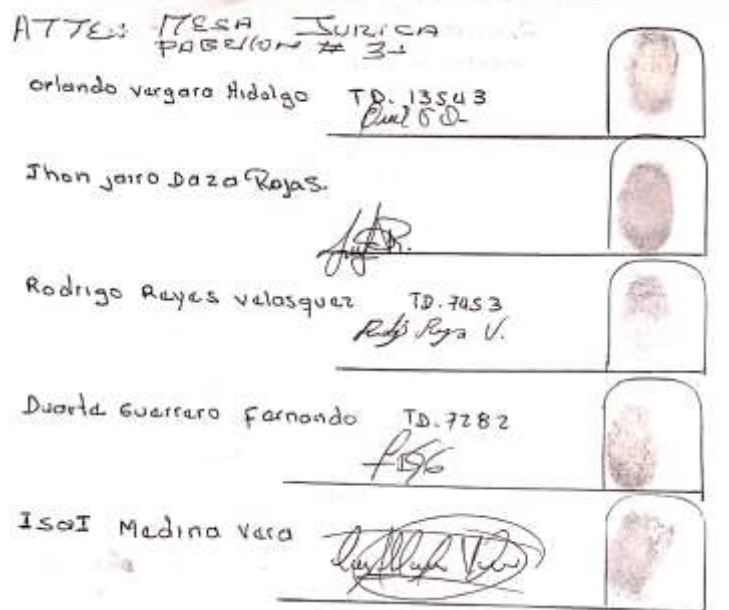 ATTE: MESA JURICA
PABELLON # 3
Orlando Vergara Hidalgo TD. 13543
Jhon jairo Daza Rojas.
Rodrigo Reyes Velasquez TD. 7453
Rodrigo Reyes V.
Duarte Guerrero Fernando TD. 7282
IsaI Medina Vera